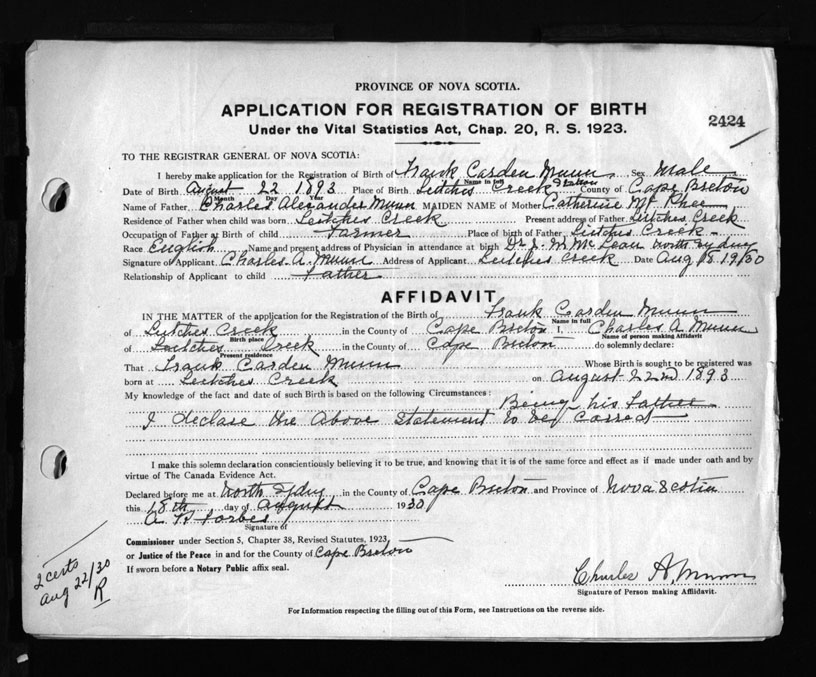 PROVINCE OF NOVA SCOTIA.
APPLICATION FOR REGISTRATION OF BIRTH
2424
Under the Vital Statistics Act, Chap. 20, R. S. 1923.
TO THE REGISTRAR GENERAL OF NOVA SCOTIA:
I hereby make application for the Registration of Birth of Frank Carden Munn Sex Male
Name in full
Date of Birth August 22 1893 Place of Birth Leitches Creek Station County of Cape Breton
Month Day Year
Name of Father Charles Alexander Munn MAIDEN NAME of Mother Catherine Mc Phee
Residence of Father when child was born Leitches Creek Present address of Father Leitches Creek
Occupation of Father at Birth of child Farmer Place of birth of Father Leitches Creek
Race English Name and present address of Physician in attendance at birth Dr J. W McLean North Sydney
Signature of Applicant Charles A. Munn Address of Applicant Leitches Creek Date Aug 18 1930
Relationship of Applicant to child Father
AFFIDAVIT
IN THE MATTER of the application for the Registration of the Birth of Frank Carden Munn
Name in full
of Leitches Creek in the County of Cape Breton I, Charles A Munn
Birth place Name of person making Affidavit
of Leitches Creek in the County of Cape Breton do solemnly declare:
Present residence
That Frank Carden Munn Whose Birth is sought to be registered was
born at Leitches Creek on August 22nd 1893
My knowledge of the fact and date of such Birth is based on the following Circumstances:
Being his Father
I declare the above statement to be correct
I make this solemn declaration conscientiously believing it to be true, and knowing that it is of the same force and effect as if made under oath and by
virtue of The Canada Evidence Act.
Declared before me at North Sydney in the County of Cape Breton and Province of Nova Scotia
this 18th day of August 1930
A Forbes
Signature of
Commissioner under Section 5, Chapter 38, Revised Statutes, 1923,
or Justice of the Peace in and for the County of Cape Breton
If sworn before a Notary Public affix seal.
2 certs
Aug 22/30
R
Charles A. Munn
Signature of Person making Affidavit.
For Information respecting the filling out of this Form, see Instructions on the reverse side.